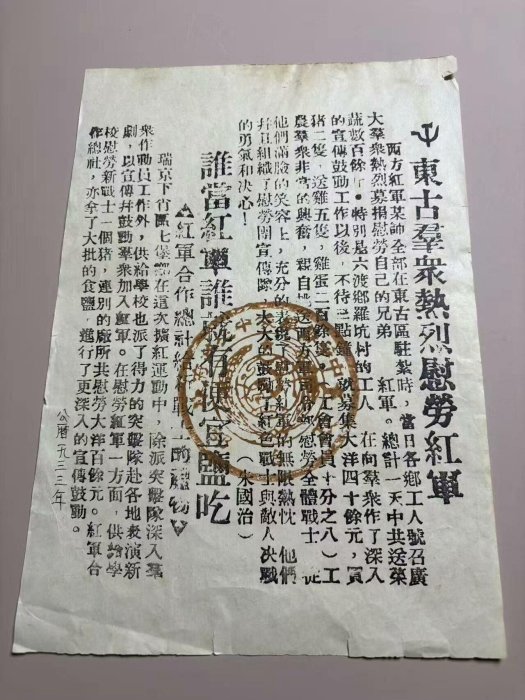 東古羣衆熱烈慰勞紅軍
西方紅軍某師全部在東古區駐紮時,當日各鄉工人號召廣
大羣衆熱烈募捐慰勞自己的兄弟 紅軍。總計一天中共送菜
蔬數百餘斤。特別是六渡鄉羅坑村的工人 在向羣衆作了深入
的宣傳鼓動工作以後,不待三點鐘 募集大洋四十餘元,買
猪二隻,送雞五隻,雞蛋二百餘 工會會員十分之八)工
農羣衆非常的興奮,親自 慰勞全體戰士
他們滿臉的笑容上,充分的表現了慰勞紅軍的無限熱忱 他們
并且組織了慰勞團宣傳隊 大大的鼓動了紅色戰士與敵人决戰
的勇氣和决心! (朱國治)
誰當紅軍誰 有 鹽吃
紅軍合作總社給 戰 的禮物
瑞京下肖區七堡鄉在這次擴紅運動中,除派突擊隊深入羣
衆作動員工作外,供給學校也派了得力的突擊隊赴各地表演新
劇,以宣傳并鼓動羣衆加入紅軍。在慰勞紅軍一方面,供給學
校慰勞新戰士一個猪,連別的廠所共慰勞大洋百餘元。紅軍合
作總社,亦拿了大批的食鹽,進行了更深入的宣傳鼓動。
公曆一九三三年